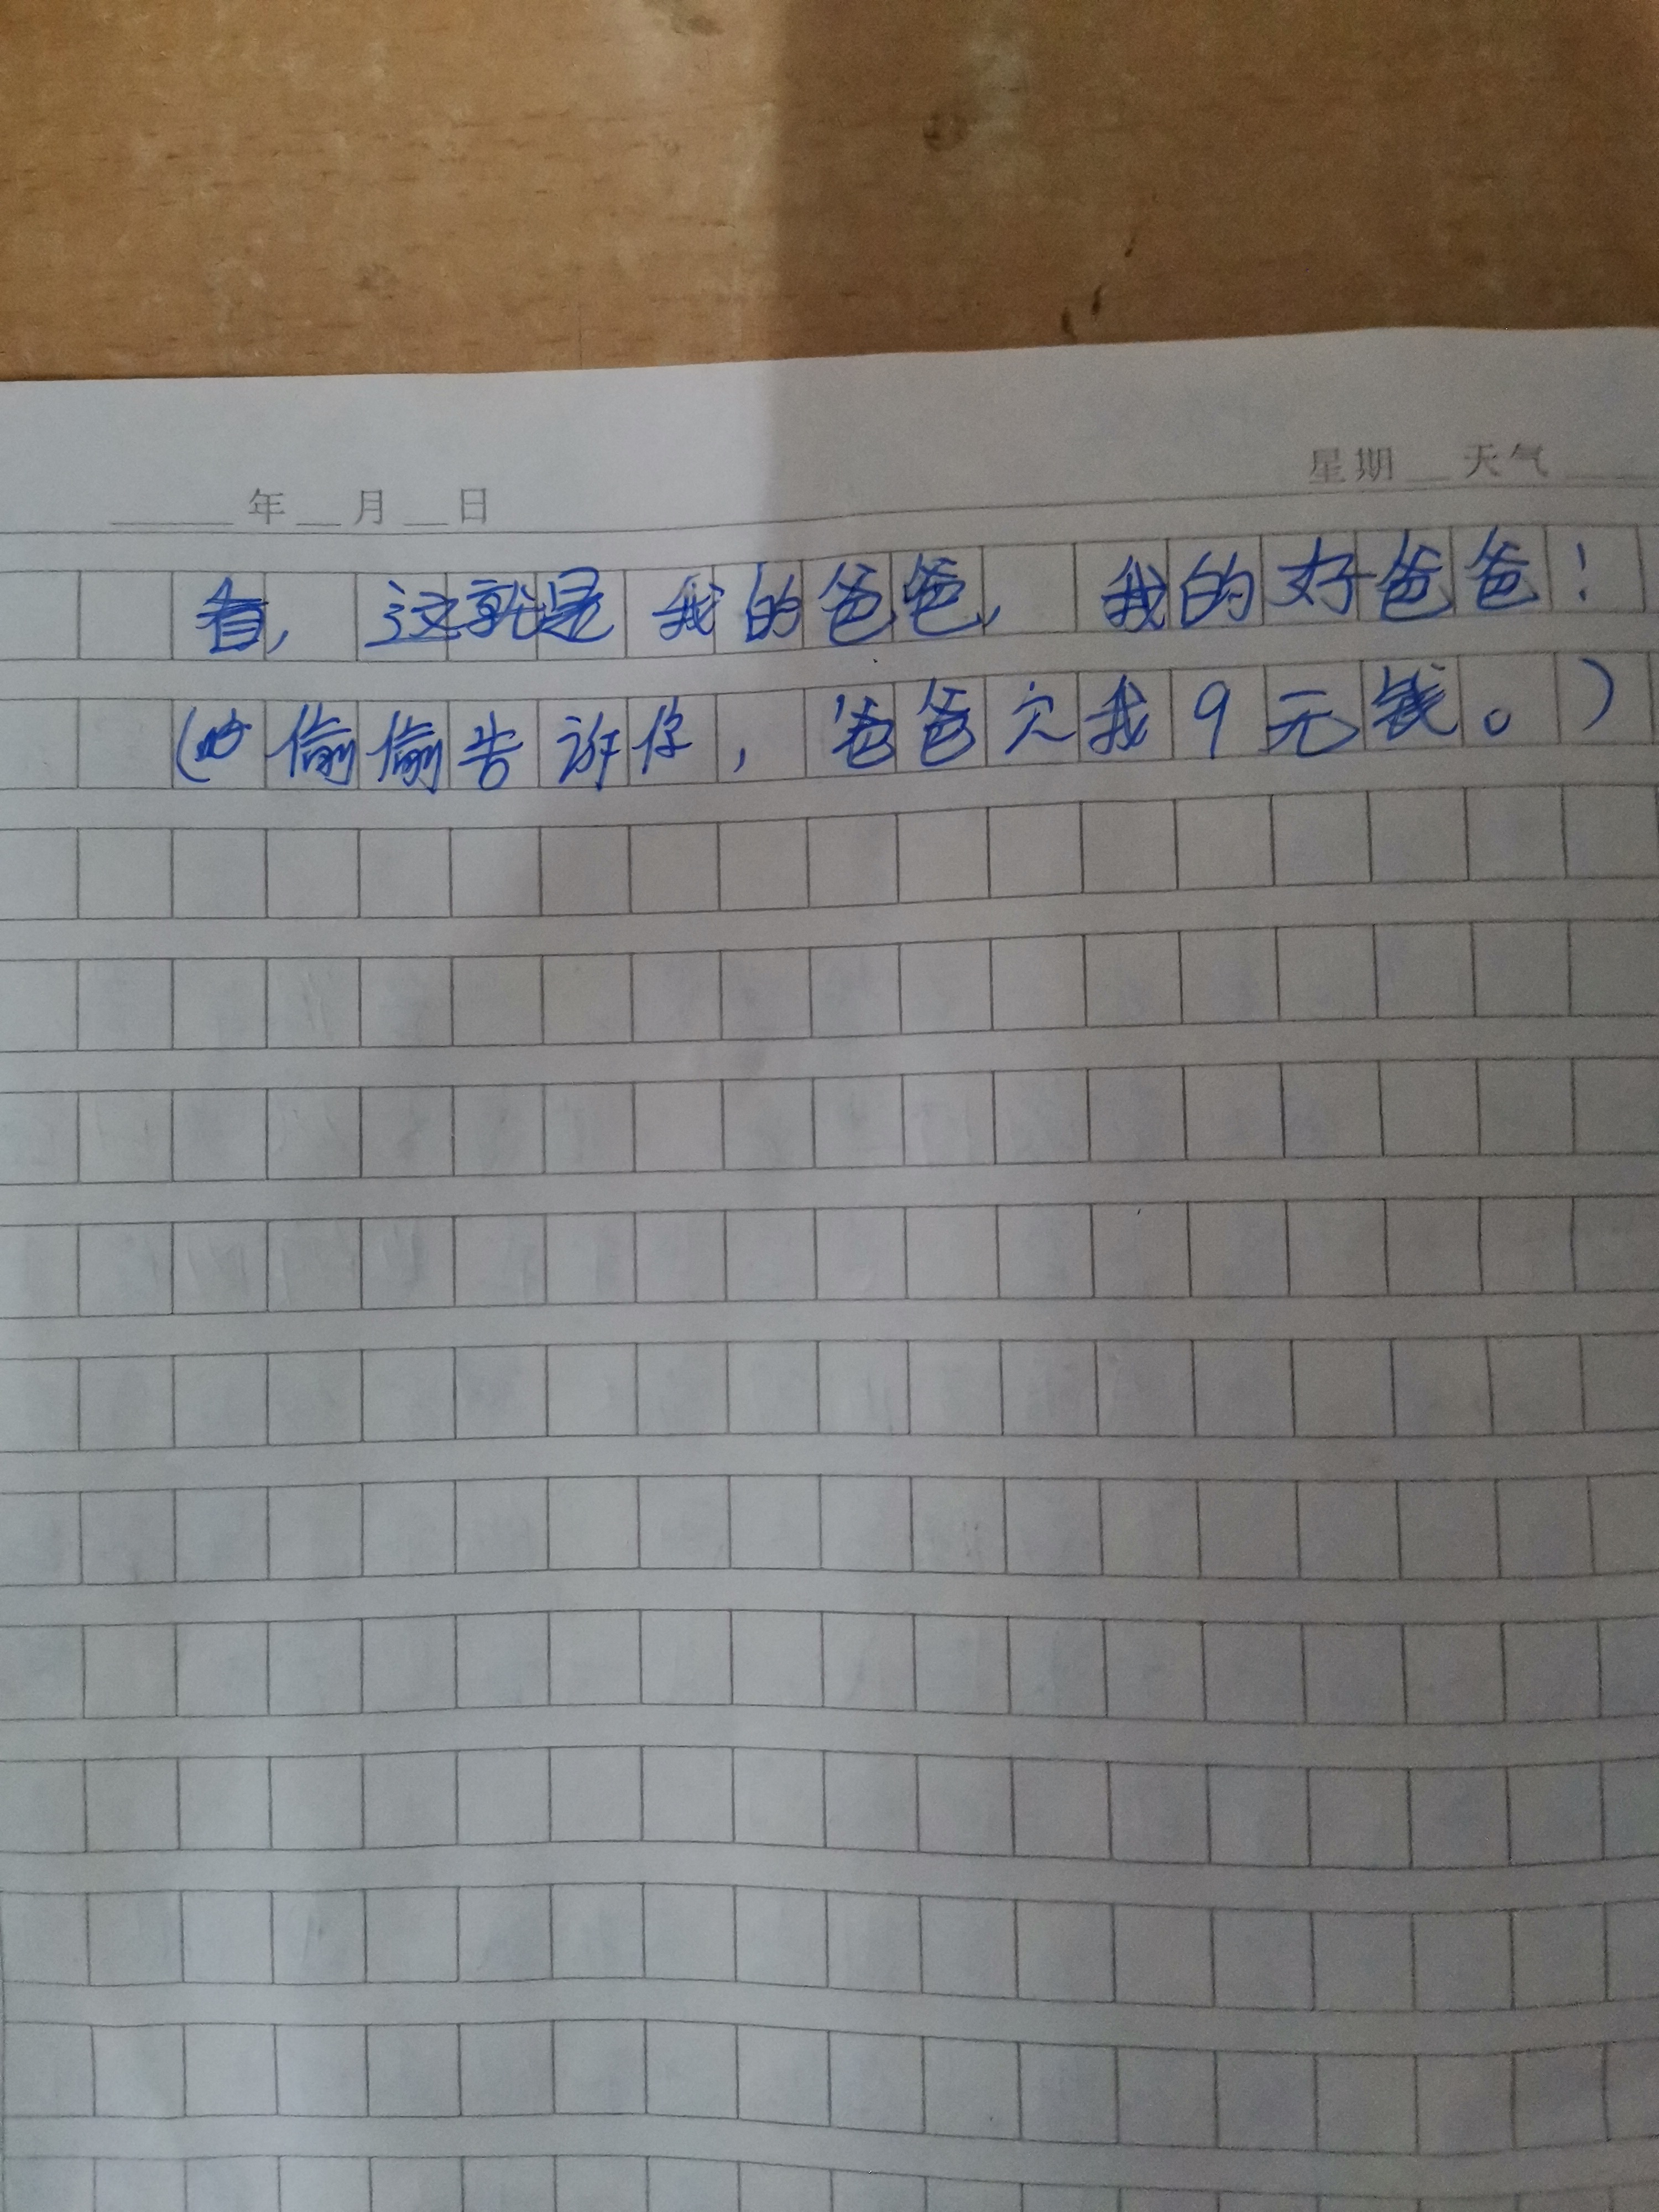 ____年__月__日 星期__天气____
看,这就是我的爸爸,我的好爸爸!
(偷偷告诉你,爸爸欠我9元钱。)